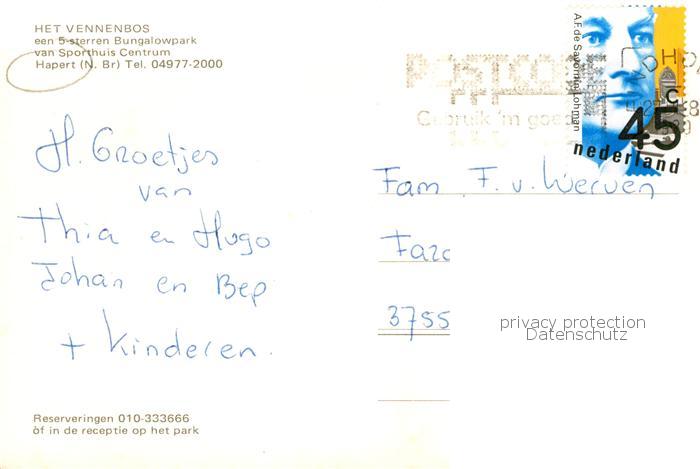 HET VENNENBOS
een 5-sterren Bungalowpark
van Sporthuis Centrum
Hapert (N. Br) Tel. 04977-2000
POSTCODE
Gebruik 'm goed
A.F. de Savornin Lohman
45 c
nederland
H. Groetjes
van
Thia en Hugo
Johan en Bep
+ Kinderen.
Fam. F. v. Werven
3755
privacy protection
Datenschutz
Reserveringen 010-333666
òf in de receptie op het park